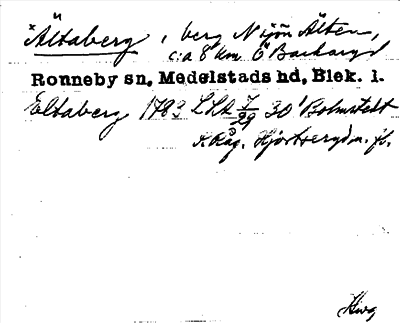 Ältaberg, berg N sjön Älten,
c:a 8 km Ö Backaryd
Ronneby sn, Medelstads hd, Blek. l.
Eltaberg 1783 LSA 7/29 30' Bolmstedt
S. Råg. Hjortseryd m. fl.